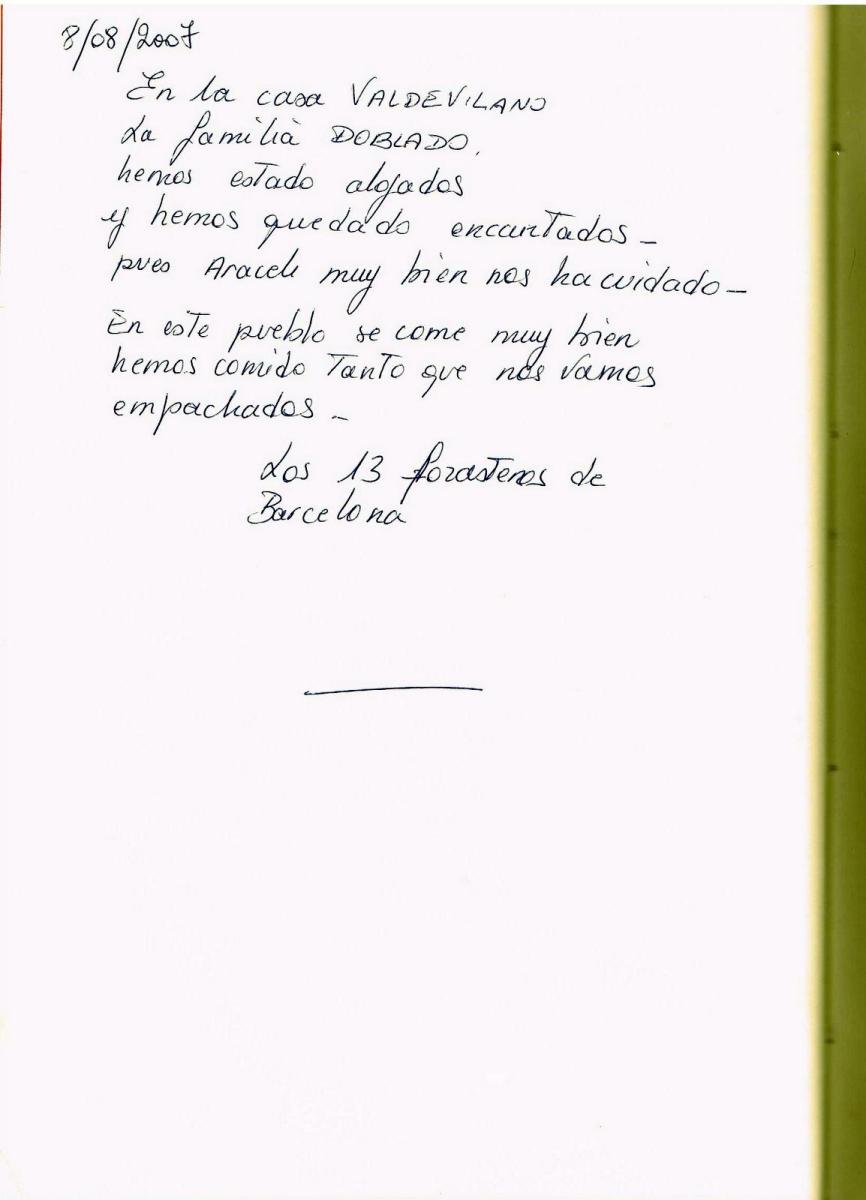 8/08/2007
En la casa VALDEVILANO
La familia DOBLADO,
hemos estado alojados
y hemos quedado encantados -
pues Araceli muy bien nos ha cuidado -
En este pueblo se come muy bien
hemos comido tanto que nos vamos
empachados -
Los 13 forasteros de
Barcelona